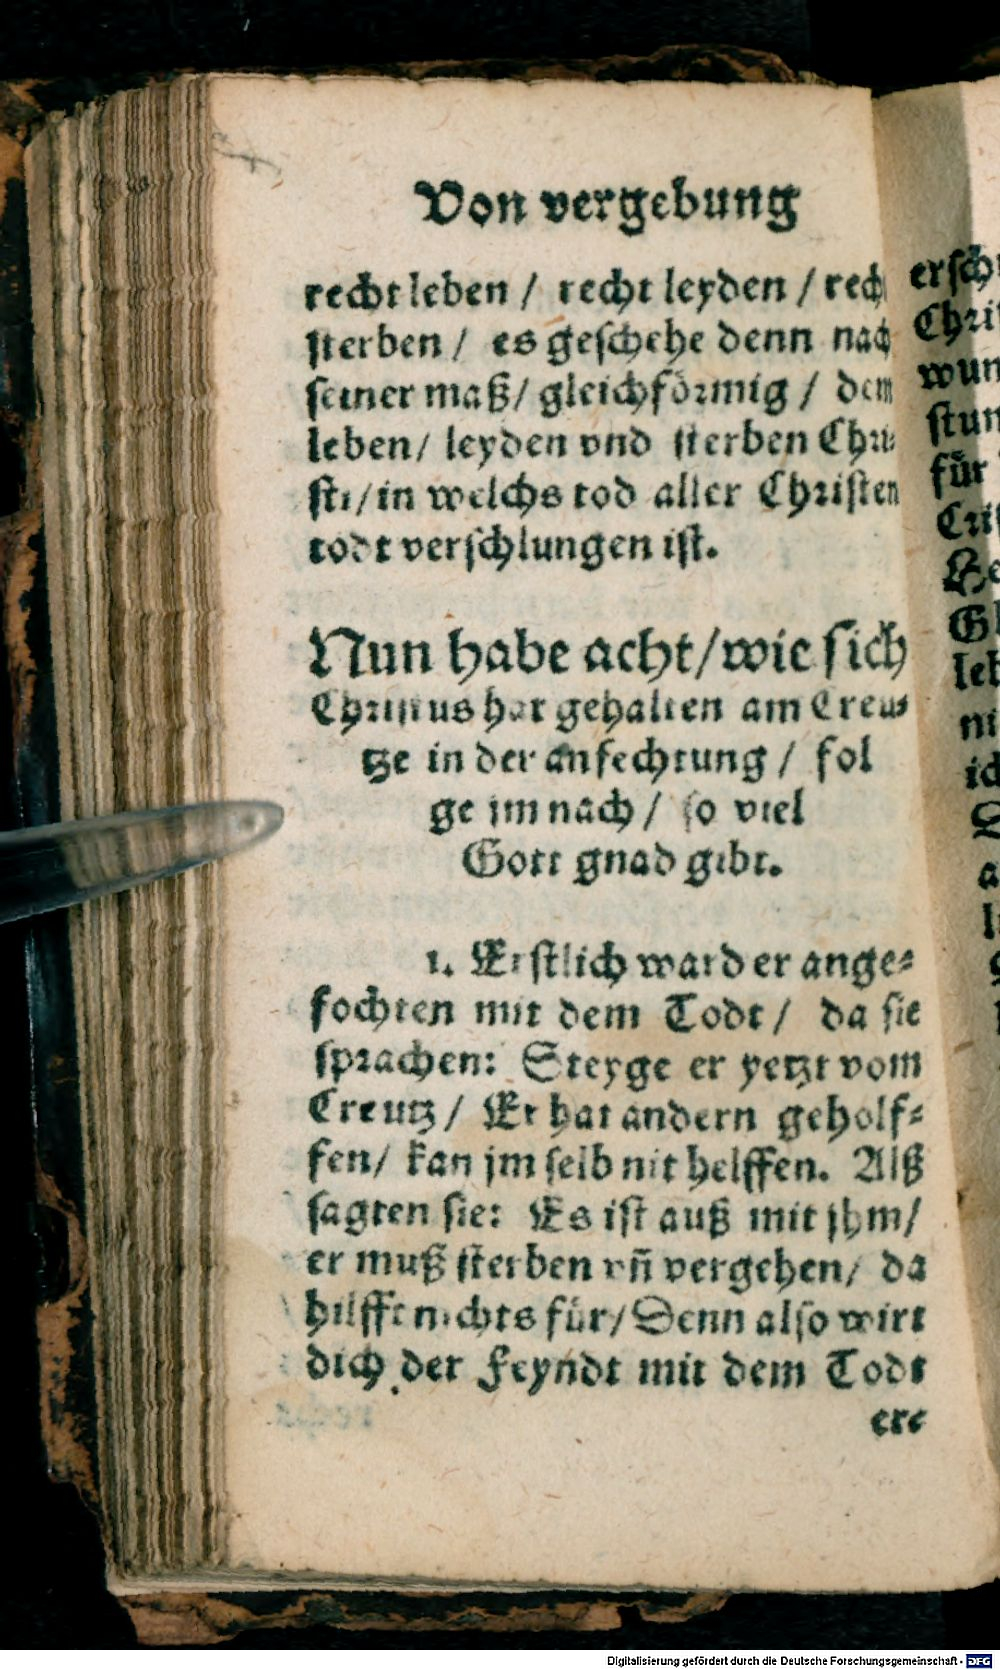 Von vergebung
recht leben / recht leyden / rech
sterben / es geschehe denn nach
seiner maß / gleichförmig / dem
leben / leyden vnd sterben Chri⸗
sti / in welchs tod aller Christen
todt verschlungen ist.
Nun habe acht / wie sich
Christus hat gehalten am Creu⸗
tze in der anfechtung / fol
ge jm nach / so viel
Gott gnad gibt.
1. Erstlich ward er ange⸗
fochten mit dem Todt / da sie
sprachen: Steyge er yetzt vom
Creutz / Er hat andern geholf⸗
fen / kan jm selb nit helffen. Alß
sagten sie: Es ist auß mit jhm /
er muß sterben vñ vergehen / da
hilfft nichts für / Denn also wirt
dich der Feyndt mit dem Todt
ere
ersch
Chri
wun
stun
für
Gl
leb
ni
Digitalisierung gefördert durch die Deutsche Forschungsgemeinschaft - DFG